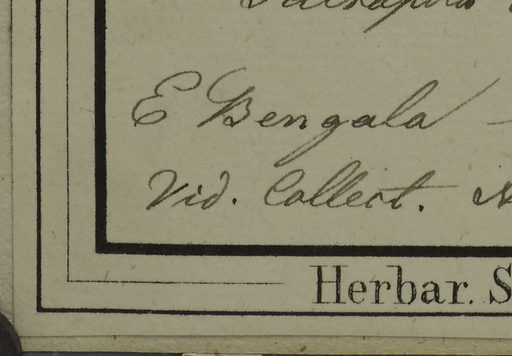 E Bengala —
Vid. Collect.
Herbar. S